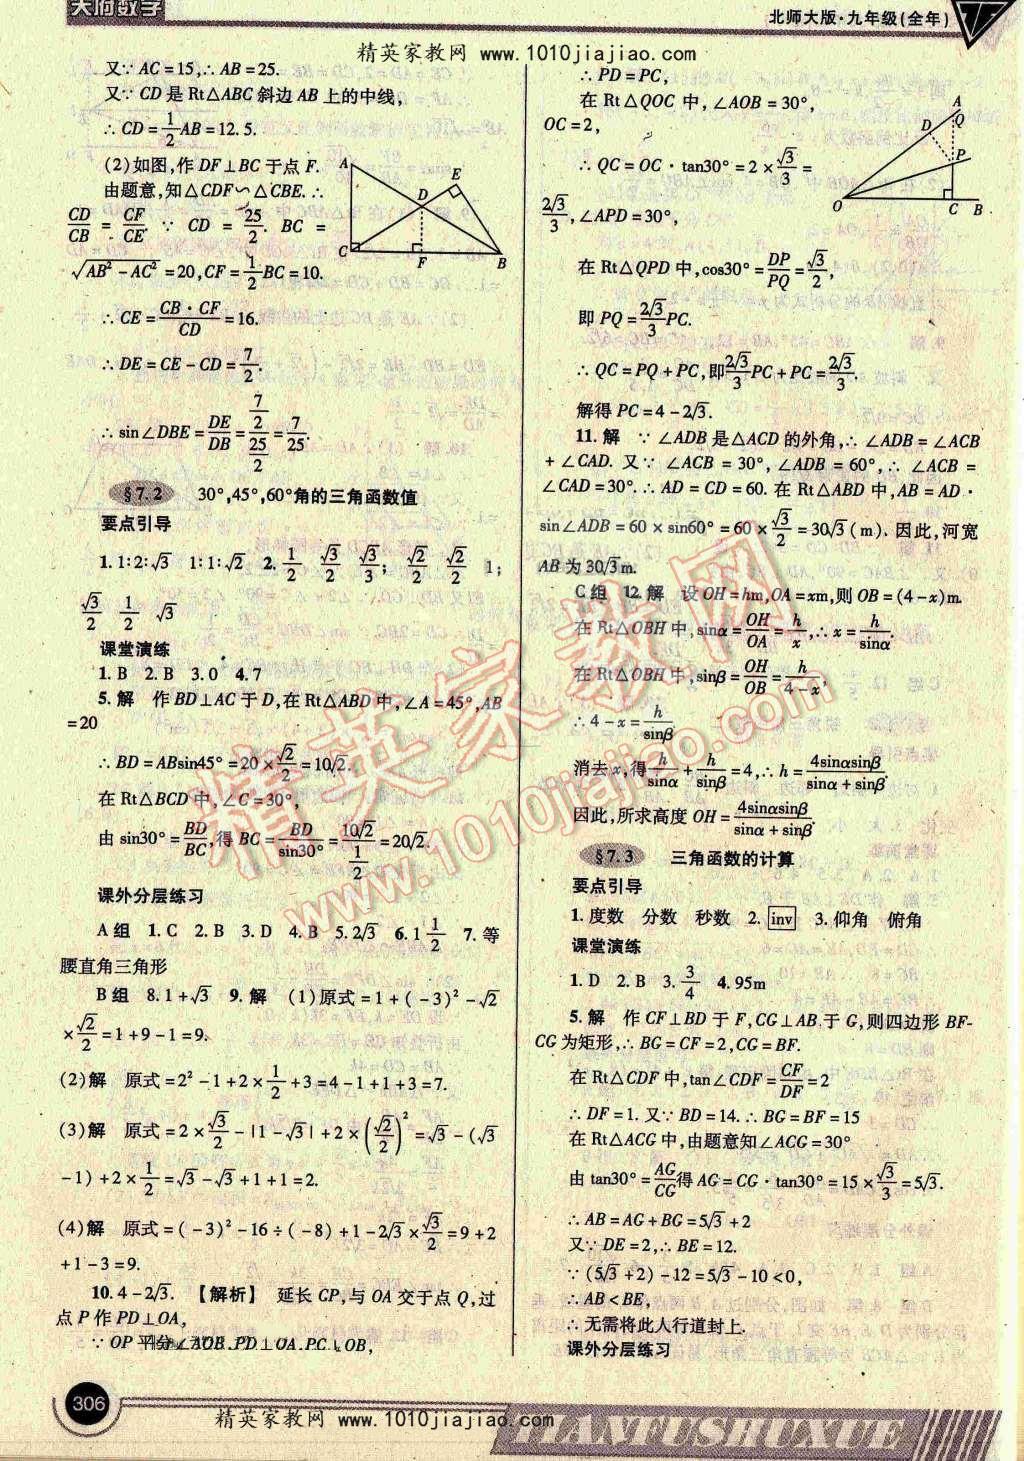 天府数学
北师大版·九年级(全年)
精英家教网 www.1010jiajiao.com
又∵AC=15,∴AB=25.
又∵CD是Rt△ABC斜边AB上的中线,
∴CD=1/2AB=12.5.
(2)如图,作DF⊥BC于点F.
由题意,知△CDF∽△CBE.∴
CD/CB=CF/CE.∵CD=25/2.BC=
√(AB²-AC²)=20,CF=1/2BC=10.
∴CE=CB·CF/CD=16.
∴DE=CE-CD=7/2.
∴sin∠DBE=DE/DB=(7/2)/(25/2)=7/25.
A
E
D
C
F
B
§7.2 30°,45°,60°角的三角函数值
要点引导
1.1:2:√3 1:1:√2 2.1/2 √3/2 √3/3; √2/2 √2/2 1;
√3/2 1/2 √3
课堂演练
1.B 2.B 3.0 4.7
5.解 作BD⊥AC于D,在Rt△ABD中,∠A=45°,AB
=20
∴BD=ABsin45°=20×√2/2=10√2.
在Rt△BCD中,∠C=30°,
由sin30°=BD/BC,得BC=BD/sin30°=10√2/(1/2)=20√2.
课外分层练习
A组 1.C 2.B 3.D 4.B 5.2√3 6.1 1/2 7.等
腰直角三角形
B组 8.1+√3 9.解 (1)原式=1+(-3)²-√2
×√2/2=1+9-1=9.
(2)解 原式=2²-1+2×1/2+3=4-1+1+3=7.
(3)解 原式=2×√3/2-|1-√3|+2×(√2/2)²=√3-(√3
-1)+2×1/2=√3-√3+1+1=2.
(4)解 原式=(-3)²-16÷(-8)+1-2√3×√3/2=9+2
+1-3=9.
10.4-2√3. 【解析】 延长CP,与OA交于点Q,过
点P作PD⊥OA,
∵OP平分∠AOB,PD⊥OA,PC⊥OB,
∴PD=PC,
在Rt△QOC中,∠AOB=30°,
OC=2,
∴QC=OC·tan30°=2×√3/3=
2√3/3,∠APD=30°,
在Rt△QPD中,cos30°=DP/PQ=√3/2,
即PQ=2√3/3PC.
∴QC=PQ+PC,即2√3/3PC+PC=2√3/3.
解得PC=4-2√3.
A
D
Q
P
O
C
B
11.解 ∵∠ADB是△ACD的外角,∴∠ADB=∠ACB
+∠CAD.又∵∠ACB=30°,∠ADB=60°,∴∠ACB=
∠CAD=30°.∴AD=CD=60.在Rt△ABD中,AB=AD·
sin∠ADB=60×sin60°=60×√3/2=30√3(m).因此,河宽
AB为30√3m.
C组 12.解 设OH=hm,OA=xm,则OB=(4-x)m.
在Rt△OBH中,sinα=OH/OA=h/x,∴x=h/sinα.
在Rt△OBH中,sinβ=OH/OB=h/(4-x),
∴4-x=h/sinβ
消去x,得h/sinα+h/sinβ=4,∴h=4sinαsinβ/(sinα+sinβ).
因此,所求高度OH=4sinαsinβ/(sinα+sinβ).
§7.3 三角函数的计算
要点引导
1.度数 分数 秒数 2.inv 3.仰角 俯角
课堂演练
1.D 2.B 3.3/4 4.95m
5.解 作CF⊥BD于F,CG⊥AB于G,则四边形BF-
CG为矩形,∴BG=CF=2,CG=BF.
在Rt△CDF中,tan∠CDF=CF/DF=2
∴DF=1.又∵BD=14.∴BG=BF=15
在Rt△ACG中,由题意知∠ACG=30°
由tan30°=AG/CG得AG=CG·tan30°=15×√3/3=5√3.
∴AB=AG+BG=5√3+2
又∵DE=2,∴BE=12.
∵(5√3+2)-12=5√3-10<0,
∴AB<BE,
∴无需将此人行道封上.
课外分层练习
精英家教网
www.1010jiajiao.com
306
精英家教网 www.1010jiajiao.com
TIANFUSHUXUE